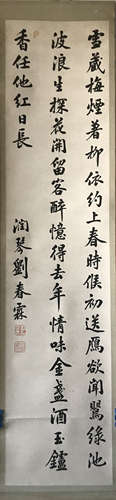 雪藏梅煙著柳依約上春時候初送鴈欲聞鶯綠池
波浪生探花開留客醉憶得去年情味金盞酒玉鑪
香任他紅日長
潤琴劉春霖